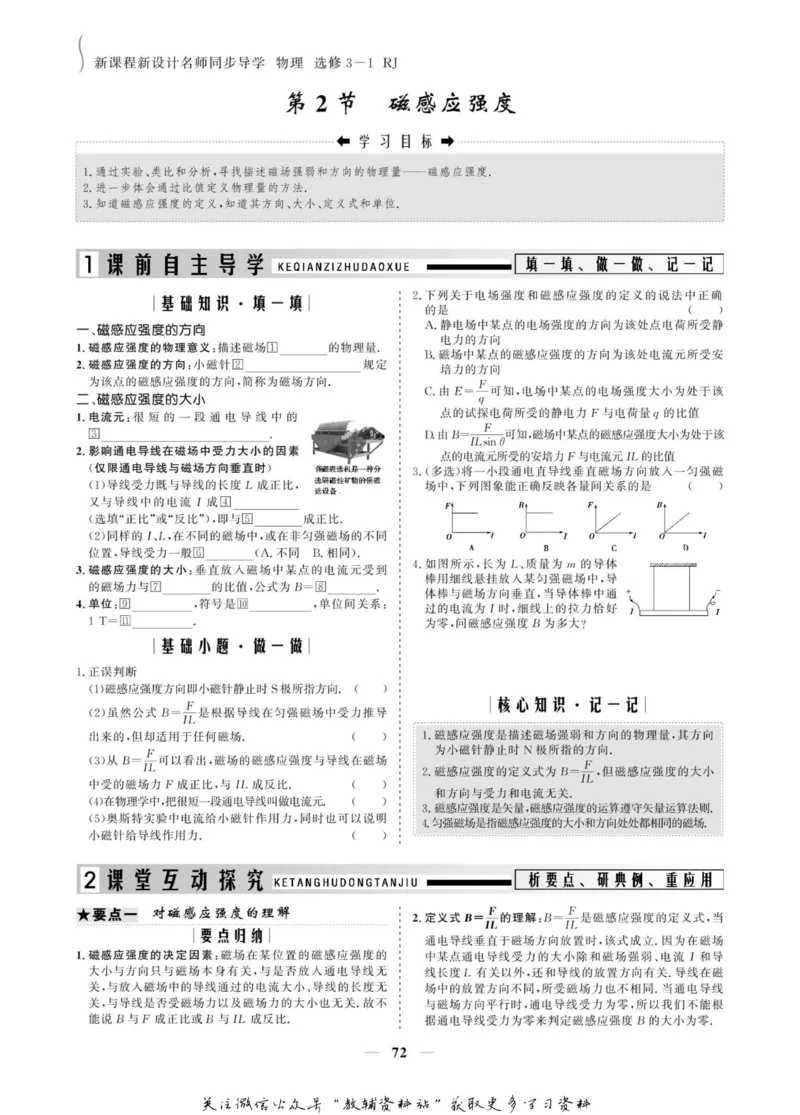 新课程新设计名师同步导学 物理 选修3-1 RJ
第2节 磁感应强度
学习目标
1.通过实验、类比和分析,寻找描述磁场强弱和方向的物理量——磁感应强度.
2.进一步体会通过比值定义物理量的方法.
3.知道磁感应强度的定义,知道其方向、大小、定义式和单位.
1 课前自主导学 KEQIANZIZHUDAOXUE 填一填、做一做、记一记
基础知识·填一填
一、磁感应强度的方向
1.磁感应强度的物理意义:描述磁场[1]________的物理量.
2.磁感应强度的方向:小磁针[2]____________________规定
为该点的磁感应强度的方向,简称为磁场方向.
二、磁感应强度的大小
1.电流元:很短的一段通电导线中的
[3]____________________________.
2.影响通电导线在磁场中受力大小的因素
(仅限通电导线与磁场方向垂直时)
(1)导线受力既与导线的长度L成正比,
又与导线中的电流I成[4]___________
(选填“正比”或“反比”),即与[5]________成正比.
(2)同样的I、L,在不同的磁场中,或在非匀强磁场的不同
位置,导线受力一般[6]________(A.不同 B.相同).
强磁磁选机是一种分
选弱磁性矿物的保磁
选设备.
3.磁感应强度的大小:垂直放入磁场中某点的电流元受到
的磁场力与[7]________的比值,公式为B=[8]________.
4.单位:[9]__________,符号是[10]__________,单位间关系:
1 T=[11]__________.
基础小题·做一做
1.正误判断
(1)磁感应强度方向即小磁针静止时S极所指方向. ( )
(2)虽然公式B=F/IL是根据导线在匀强磁场中受力推导
出来的,但却适用于任何磁场. ( )
(3)从B=F/IL可以看出,磁场的磁感应强度与导线在磁场
中受的磁场力F成正比,与IL成反比. ( )
(4)在物理学中,把很短一段通电导线叫做电流元. ( )
(5)奥斯特实验中电流给小磁针作用力,同时也可以说明
小磁针给导线作用力. ( )
2.下列关于电场强度和磁感应强度的定义的说法中正确
的是 ( )
A.静电场中某点的电场强度的方向为该处点电荷所受静
电力的方向
B.磁场中某点的磁感应强度的方向为该处电流元所受安
培力的方向
C.由E=F/q可知,电场中某点的电场强度大小为处于该
点的试探电荷所受的静电力F与电荷量q的比值
D.由B=F/ILsin θ可知,磁场中某点的磁感应强度大小为处于该
点的电流元所受的安培力F与电流元IL的比值
3.(多选)将一小段通电直导线垂直磁场方向放入一匀强磁
场中,下列图象能正确反映各量间关系的是 ( )
F O I B O I F O I B O I
A B C D
4.如图所示,长为L、质量为m的导体
棒用细线悬挂放入某匀强磁场中,导
体棒与磁场方向垂直,当导体棒中通
过的电流为I时,细线上的拉力恰好
为零,问磁感应强度B为多大?
+ − I I
核心知识·记一记
1.磁感应强度是描述磁场强弱和方向的物理量,其方向
为小磁针静止时N极所指的方向.
2.磁感应强度的定义式为B=F/IL,但磁感应强度的大小
和方向与受力和电流无关.
3.磁感应强度是矢量,磁感应强度的运算遵守矢量运算法则.
4.匀强磁场是指磁感应强度的大小和方向处处都相同的磁场.
2 课堂互动探究 KETANGHUDONGTANJIU 析要点、研典例、重应用
★要点一 对磁感应强度的理解
要点归纳
1.磁感应强度的决定因素:磁场在某位置的磁感应强度的
大小与方向只与磁场本身有关,与是否放入通电导线无
关,与放入磁场中的导线通过的电流大小、导线的长度无
关,与导线是否受磁场力以及磁场力的大小也无关.故不
能说B与F成正比或B与IL成反比.
2.定义式B=F/IL的理解:B=F/IL是磁感应强度的定义式,当
通电导线垂直于磁场方向放置时,该式成立.因为在磁场
中某点通电导线受力的大小除和磁场强弱、电流I和导
线长度L有关以外,还和导线的放置方向有关.导线在磁
场中的放置方向不同,所受磁场力也不相同.当通电导线
与磁场方向平行时,通电导线受力为零,所以我们不能根
据通电导线受力为零来判定磁感应强度B的大小为零.
— 72 —
关注微信公众号“教辅资料站”获取更多学习资料